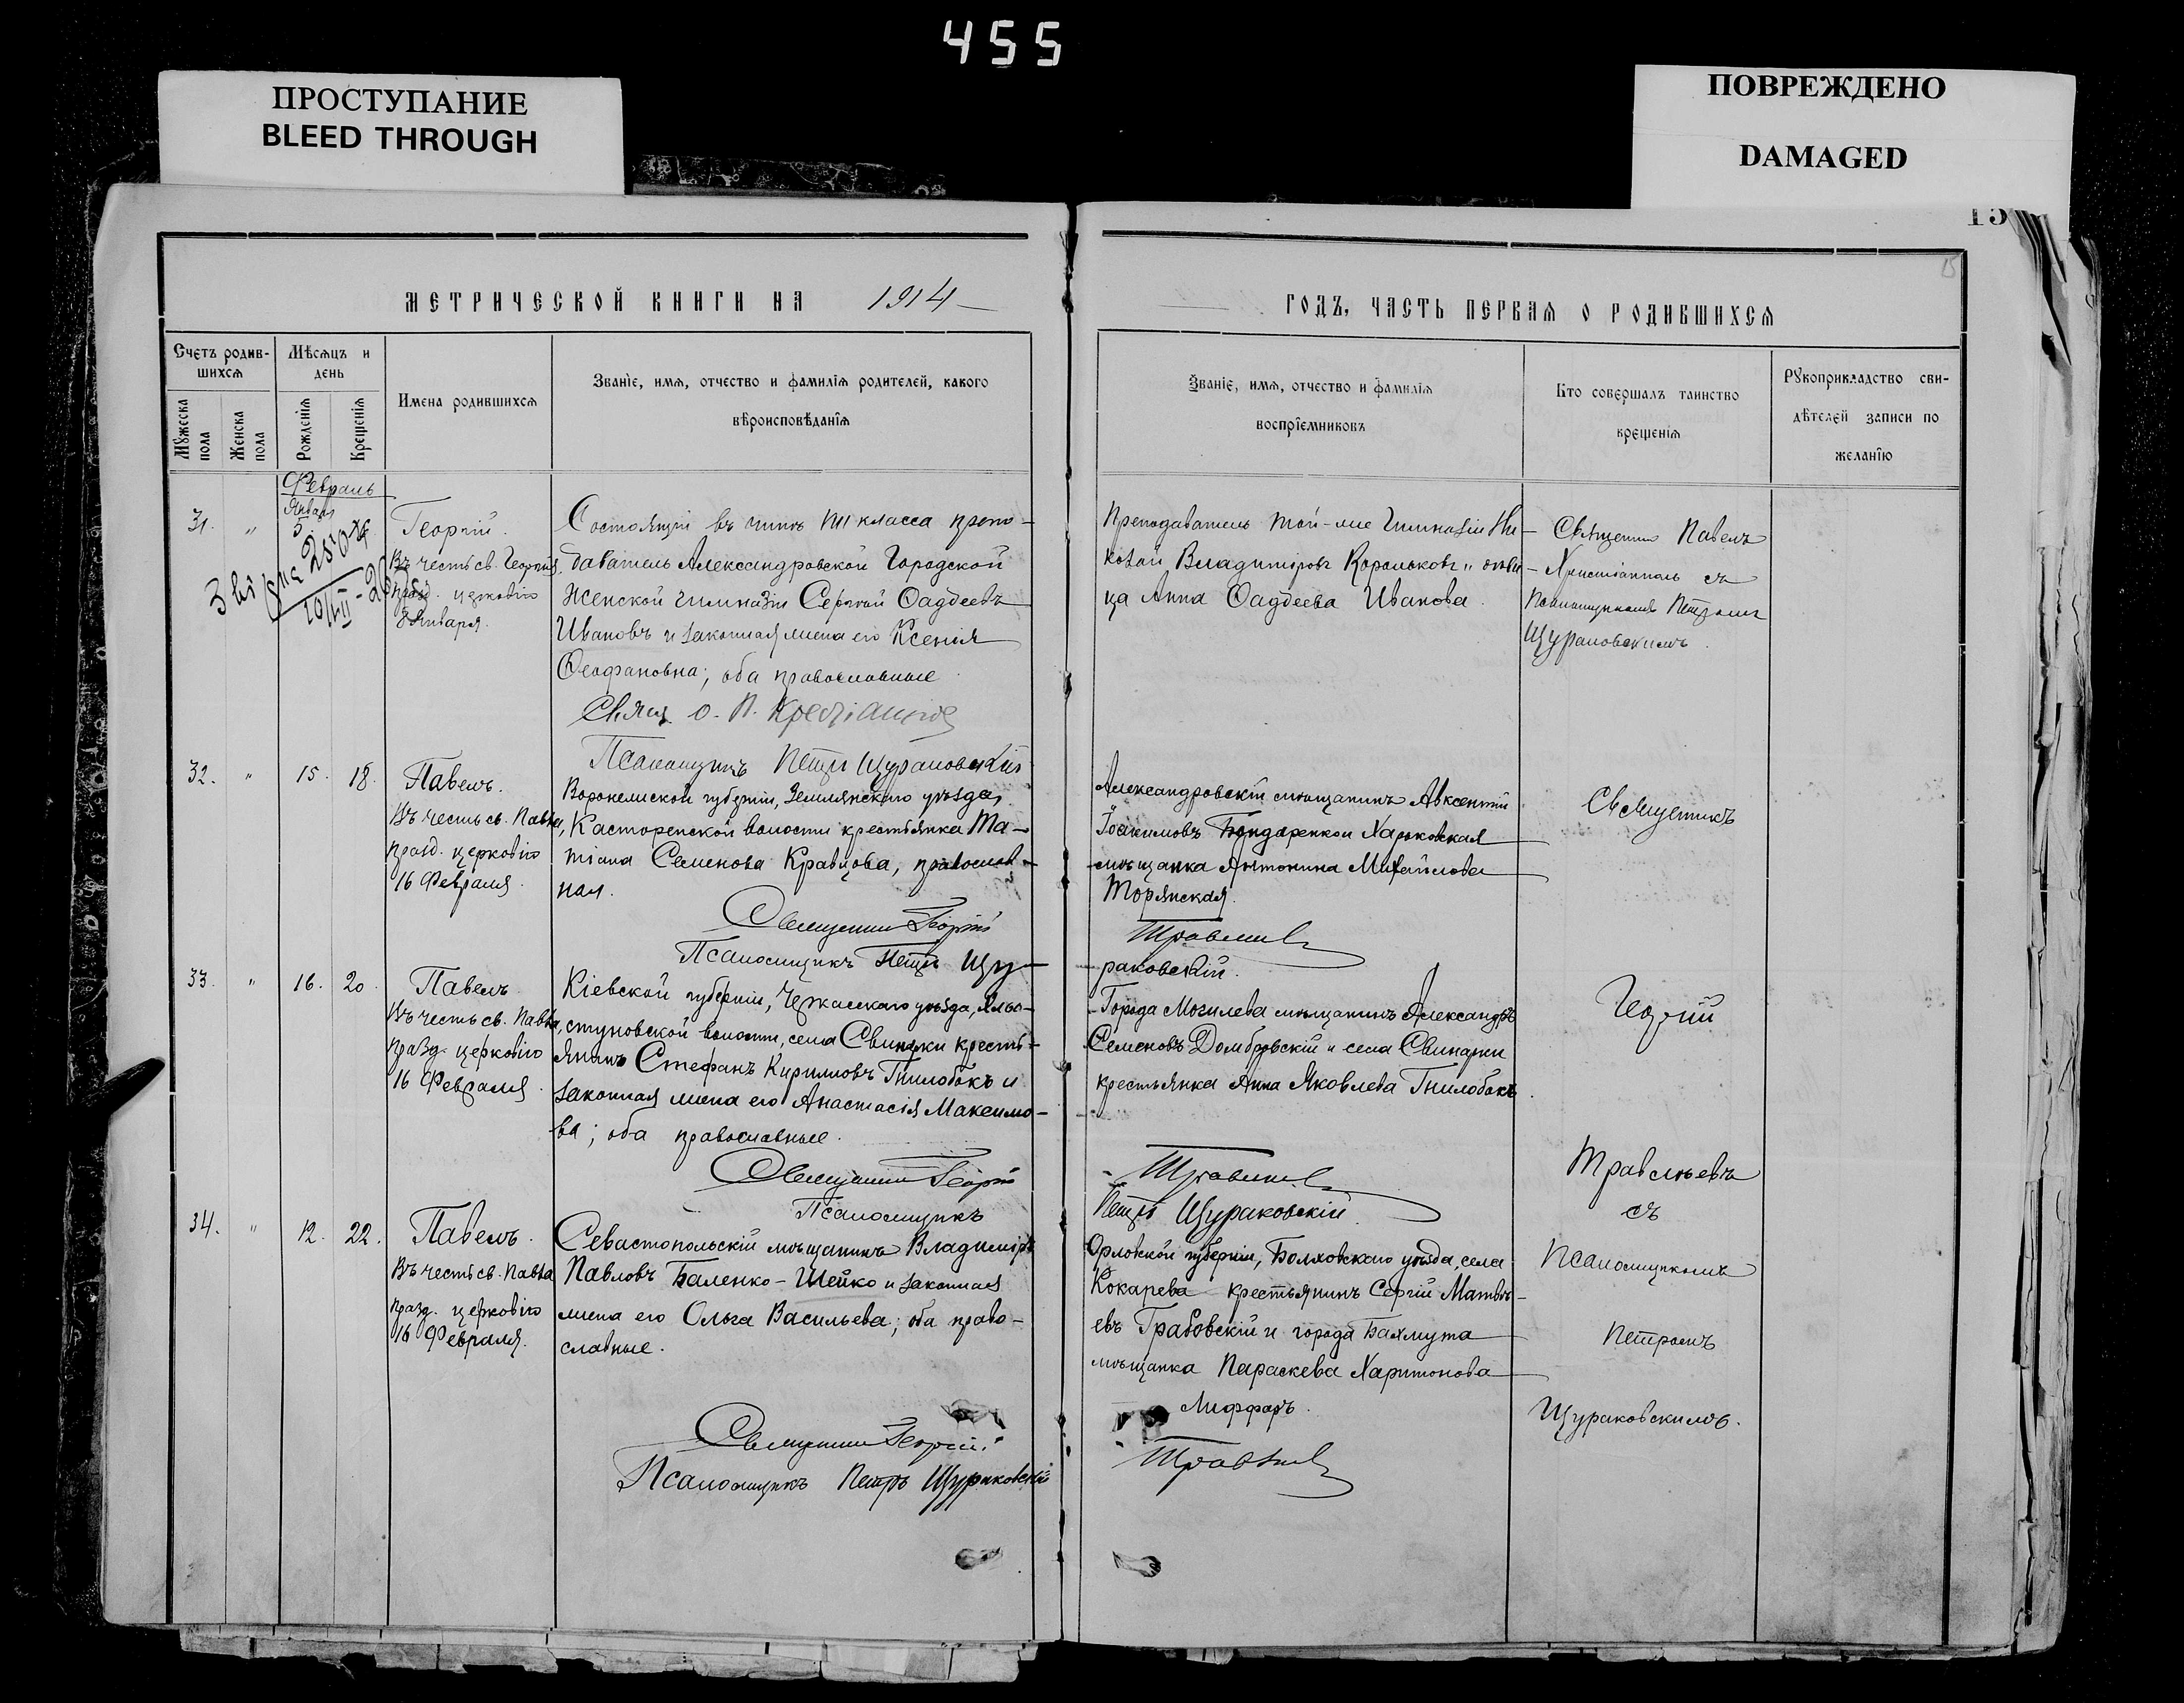 455
ПРОСТУПАНИЕ
BLEED THROUGH
ПОВРЕЖДЕНО
DAMAGED
15
15
МЕТРИЧЕСКОЙ КНИГИ НА 1914
ГОДЪ, ЧАСТЬ ПЕРВАЯ О РОДИВШИХСЯ
Счетъ родив-
шихся
Мѣсяцъ и
день
Мужеска
пола
Женска
пола
Рожденія
Крещенія
Имена родившихся
Званіе, имя, отчество и фамилія родителей, какого
вѣроисповѣданія
Званіе, имя, отчество и фамилія
воспріемниковъ
Кто совершалъ таинство
крещенія
Рукоприкладство сви-
дѣтелей записи по
желанію
Февраль
Января
31. " 5.
Георгій.
Въ честь св. Георгія,
празд. церковію
8 Января.
Состоящій въ чинѣ VIII класса препо-
даватель Александровской Городской
Женской гимназіи Сергѣй Фаддеевъ
Ивановъ и законная жена его Ксенія
Феофановна; оба православные
Свящ. о. П.
Псаломщикъ Петръ Щураковскій
Преподаватель той-же Гимназіи Ни-
колай Владиміровъ Корольковъ и дѣви-
ца Анна Фаддеева Иванова.
Священникъ Павелъ
съ
Псаломщикомъ Петромъ
Щураковскимъ.
32. " 15. 18.
Павелъ.
Въ честь св. Павла,
празд. церковію
16 Февраля.
Воронежской губерніи, Землянскаго уѣзда,
Касторенской волости крестьянка Та-
тіана Семенова Кравцова, православ-
ная.
Священникъ Георгій
Псаломщикъ Петръ Щу-
Александровскій мѣщанинъ Авксентій
Іоакимовъ Бондаренко и Харьковская
мѣщанка Антонина Михайлова
Торянская.
Травлѣевъ
раковскій.
Священникъ
33. " 16. 20.
Павелъ
Въ честь св. Павла,
празд. церковію
16 Февраля.
Кіевской губерніи, Черкасскаго уѣзда,
ступовской волости, села Свинарки кресть-
янинъ Стефанъ Кирилловъ Гнилобокъ и
законная жена его Анастасія Максимо-
ва; оба православные.
Священникъ Георгій
Псаломщикъ
Города Могилева мѣщанинъ Александръ
Семеновъ Домбровскій и села Свинарки
крестьянка Анна Яковлева Гнилобокъ.
Травлѣевъ
Петръ Щураковскій.
Георгій
Травлѣевъ
съ
34. " 12. 22.
Павелъ.
Въ честь св. Павла
празд. церковію
16 Февраля.
Севастопольскій мѣщанинъ Владиміръ
Павловъ Баленко-Шейко и законная
жена его Ольга Васильева; оба право-
славные.
Священникъ Георгій
Псаломщикъ Петръ Щураковскій
Орловской губерніи, Болховскаго уѣзда, села
Кокарева крестьянинъ Сергій Матвѣ-
евъ Грабовскій и города Бахмута
мѣщанка Параскева Харитонова
Лифарь.
Травлѣевъ
Псаломщикомъ
Петромъ
Щураковскимъ.